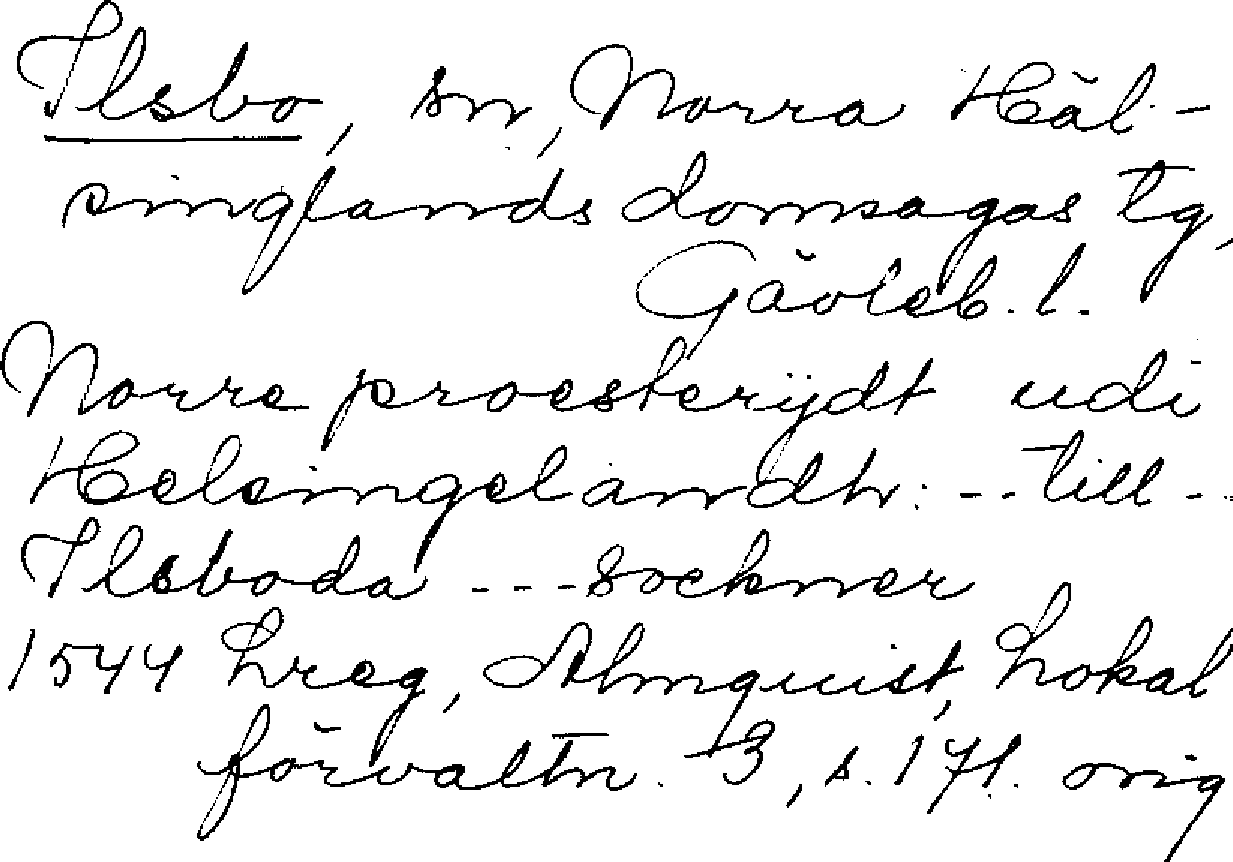 Ilsbo, sn, Norra Häl-
singlands domsagas tg,
Gävleb. l.
Norre proesterijdt udi
Helsingelandh: -- till --
Ilsboda --- sockner
1544 Lreg, Almquist, Lokal
förvaltn. 3, s. 171. orig